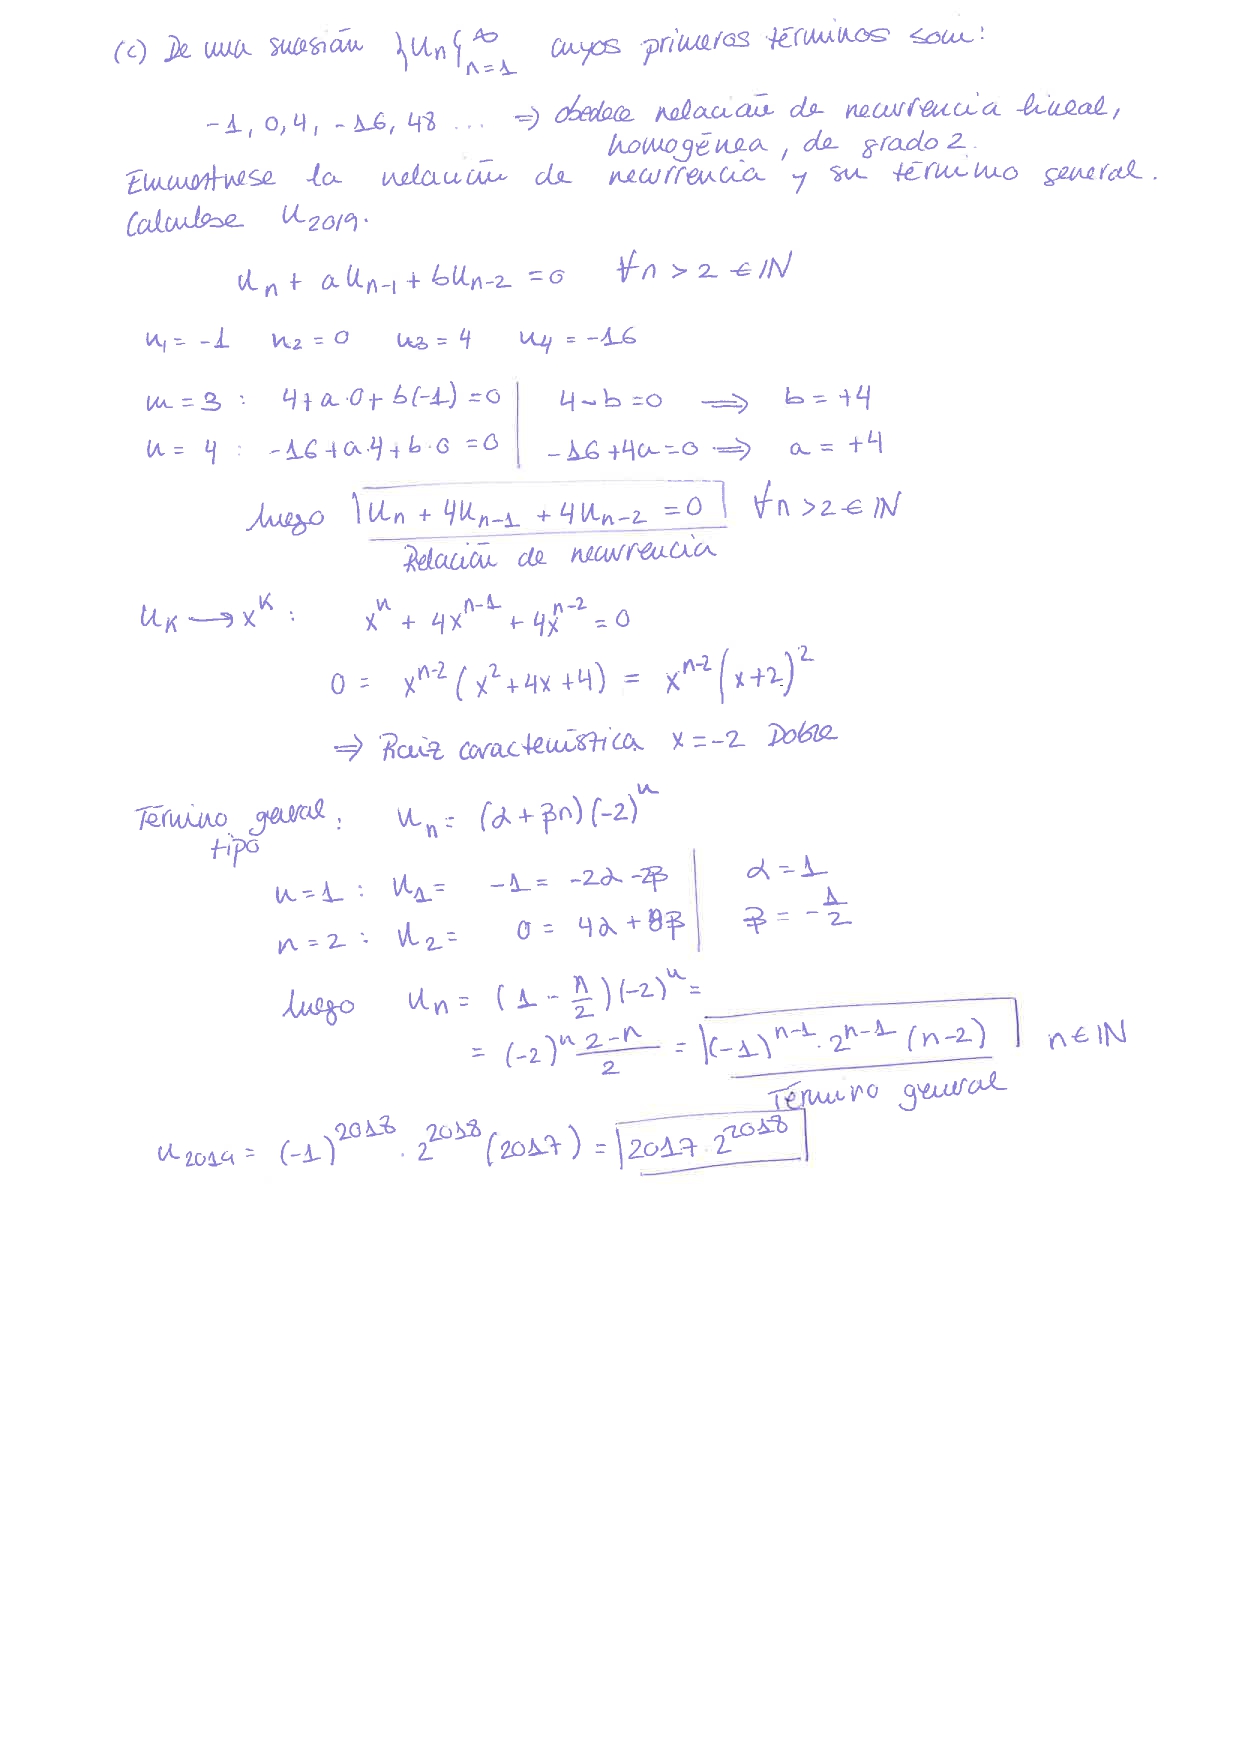 (c) De una sucesión }Un{∞ n=1 cuyos primeros términos son:
-1, 0, 4, -16, 48 ... ⇒ obedece relación de recurrencia lineal,
homogénea, de grado 2.
Encuéntrese la relación de recurrencia y su término general.
Calcúlese U2019.
Un + a Un-1 + b Un-2 = 0 ∀n > 2 ∈ IN
u1 = -1 u2 = 0 u3 = 4 u4 = -16
n = 3 : 4 + a·0 + b(-1) = 0 | 4 - b = 0 ⟹ b = +4
n = 4 : -16 + a·4 + b·0 = 0 | -16 + 4a = 0 ⟹ a = +4
luego Un + 4Un-1 + 4Un-2 = 0 ∀n > 2 ∈ IN
Relación de recurrencia
UK → x^K : x^n + 4x^n-1 + 4x^n-2 = 0
0 = x^n-2 (x^2 + 4x + 4) = x^n-2 (x+2)^2
⇒ Raíz característica x = -2 Doble
Término general :
tipo
Un = (α + βn)(-2)^n
n = 1 : U1 = -1 = -2α - 2β | α = 1
n = 2 : U2 = 0 = 4α + 8β | β = -1/2
luego Un = (1 - n/2)(-2)^n =
= (-2)^n (2-n)/2 = (-1)^n-1 · 2^n-1 (n-2) n ∈ IN
Término general
U2019 = (-1)^2018 · 2^2018 (2017) = 2017 · 2^2018